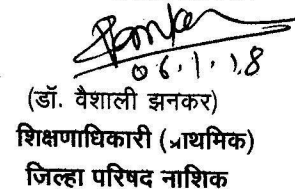 06.1.18
(डॉ. वैशाली झनकर)
शिक्षणाधिकारी (प्राथमिक)
जिल्हा परिषद नाशिक